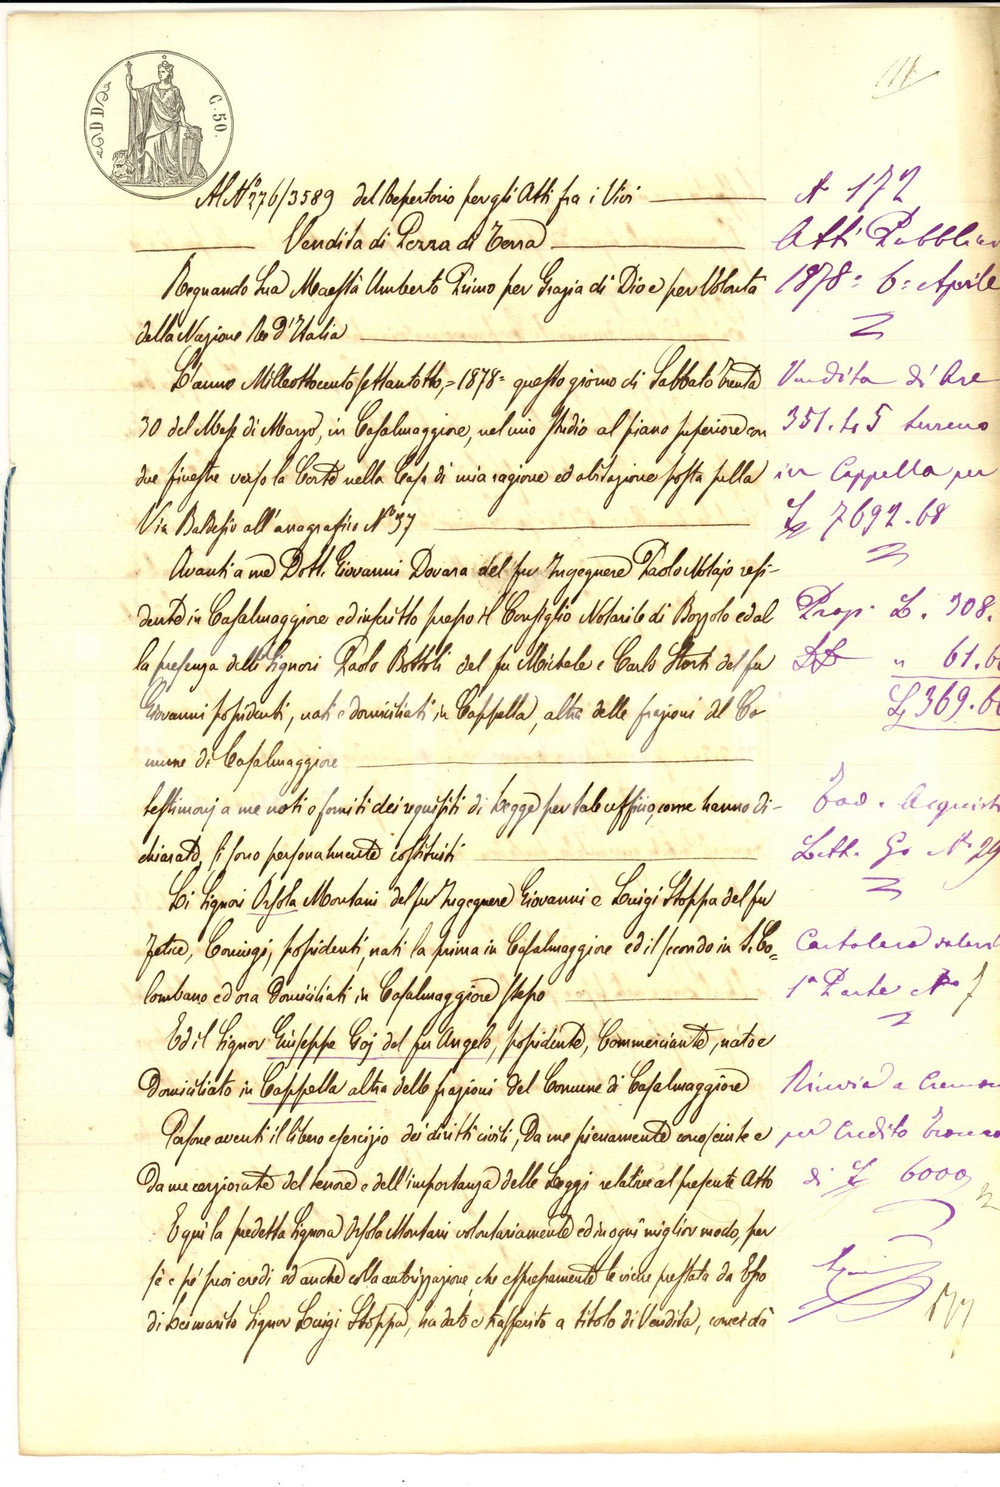 C. 50.
Al N.° 276/3589 del Repertorio per gli Atti fra i Vivi
Vendita di Pezza di Terra
Regnando Sua Maestà Umberto Primo per Grazia di Dio e per Volontà
della Nazione Re d'Italia
L'anno Milleottocentosettantotto, = 1878 = questo giorno di Sabbato trenta
30 del Mese di Marzo, in Casalmaggiore, nel mio studio al piano superiore con
due finestre verso la Corte nella Casa di mia ragione ed abitazione posta sulla
Via Baldesio all'anagrafico N.° 37
Avanti a me Dott. Giovanni Dovara del fu Ingegnere Paolo Notajo resi-
dente in Casalmaggiore ed inscritto presso il Consiglio Notarile di Bozzolo ed al
la presenza delli Signori Paolo Bottoli del fu Michele e Carlo Storti del fu
Giovanni possidenti, nati e domiciliati in Cappella, altra delle frazioni del Co-
mune di Casalmaggiore
testimonj a me noti e forniti dei requisiti di Legge per tale uffizio, come hanno di-
chiarato, si sono personalmente costituiti
Li Signori Orsola Montani del fu Ingegnere Giovanni e Luigi Stoppa del fu
Felice, Conjugi, possidenti, nati la prima in Casalmaggiore ed il secondo in S. Co=
lombano ed ora Domiciliati in Casalmaggiore stesso
Ed il Signor Giuseppe Goj del fu Angelo, possidente, Commerciante, nato e
Domiciliato in Cappella altra delle frazioni del Comune di Casalmaggiore
Persone aventi il libero esercizio dei diritti civili, Da me pienamente conosciute e
Da me cerziorate del tenore e dell'importanza delle Leggi relative al presente Atto
E qui la predetta Signora Orsola Montani volontariamente ed in ogni miglior modo, per
sè e pe' suoi eredi ed anche colla autorizzazione, che espressamente le viene prestata da Esso
di Lei marito Signor Luigi Stoppa, ha dato e trasferito a titolo di Vendita, come dà
N 172
Atti Pubblici
1878 = 6 = Aprile
Vendita di Are
351. terreno
in Cappella per
L 7692.68
Prop. L. 308.
" 61.60
L 369.60
Tav. Acquist
Lett. Go N. 29
1a Parte N°
Rinvia a Cremona
per Credito
di L 6000